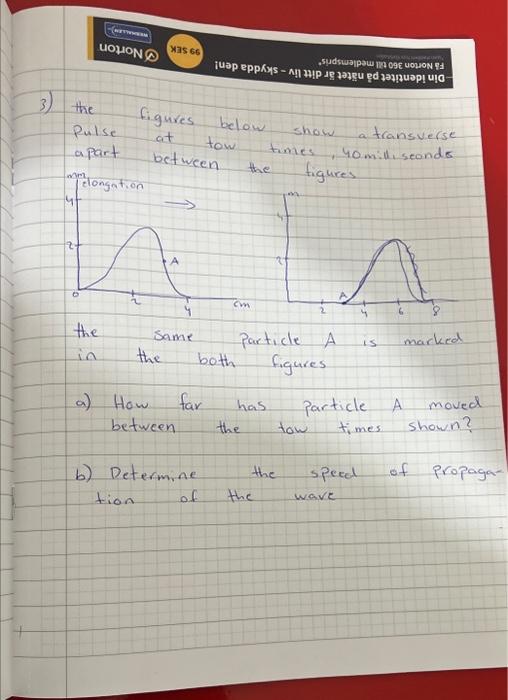 Din identitet på nätet är ditt liv – skydda den!
Få Norton 360 till medlemspris*
99 SEK
Norton
3) the figures below show a transverse
Pulse at tow times, 40 milli seconds
apart between the figures
mm elongation
4
2
0
A
2
4
cm
m
4
2
A
2
4
6
8
the same Particle A is marked
in the both figures
a) How far has Particle A moved
between the tow times shown?
b) Determine the speed of Propaga-
tion of the wave